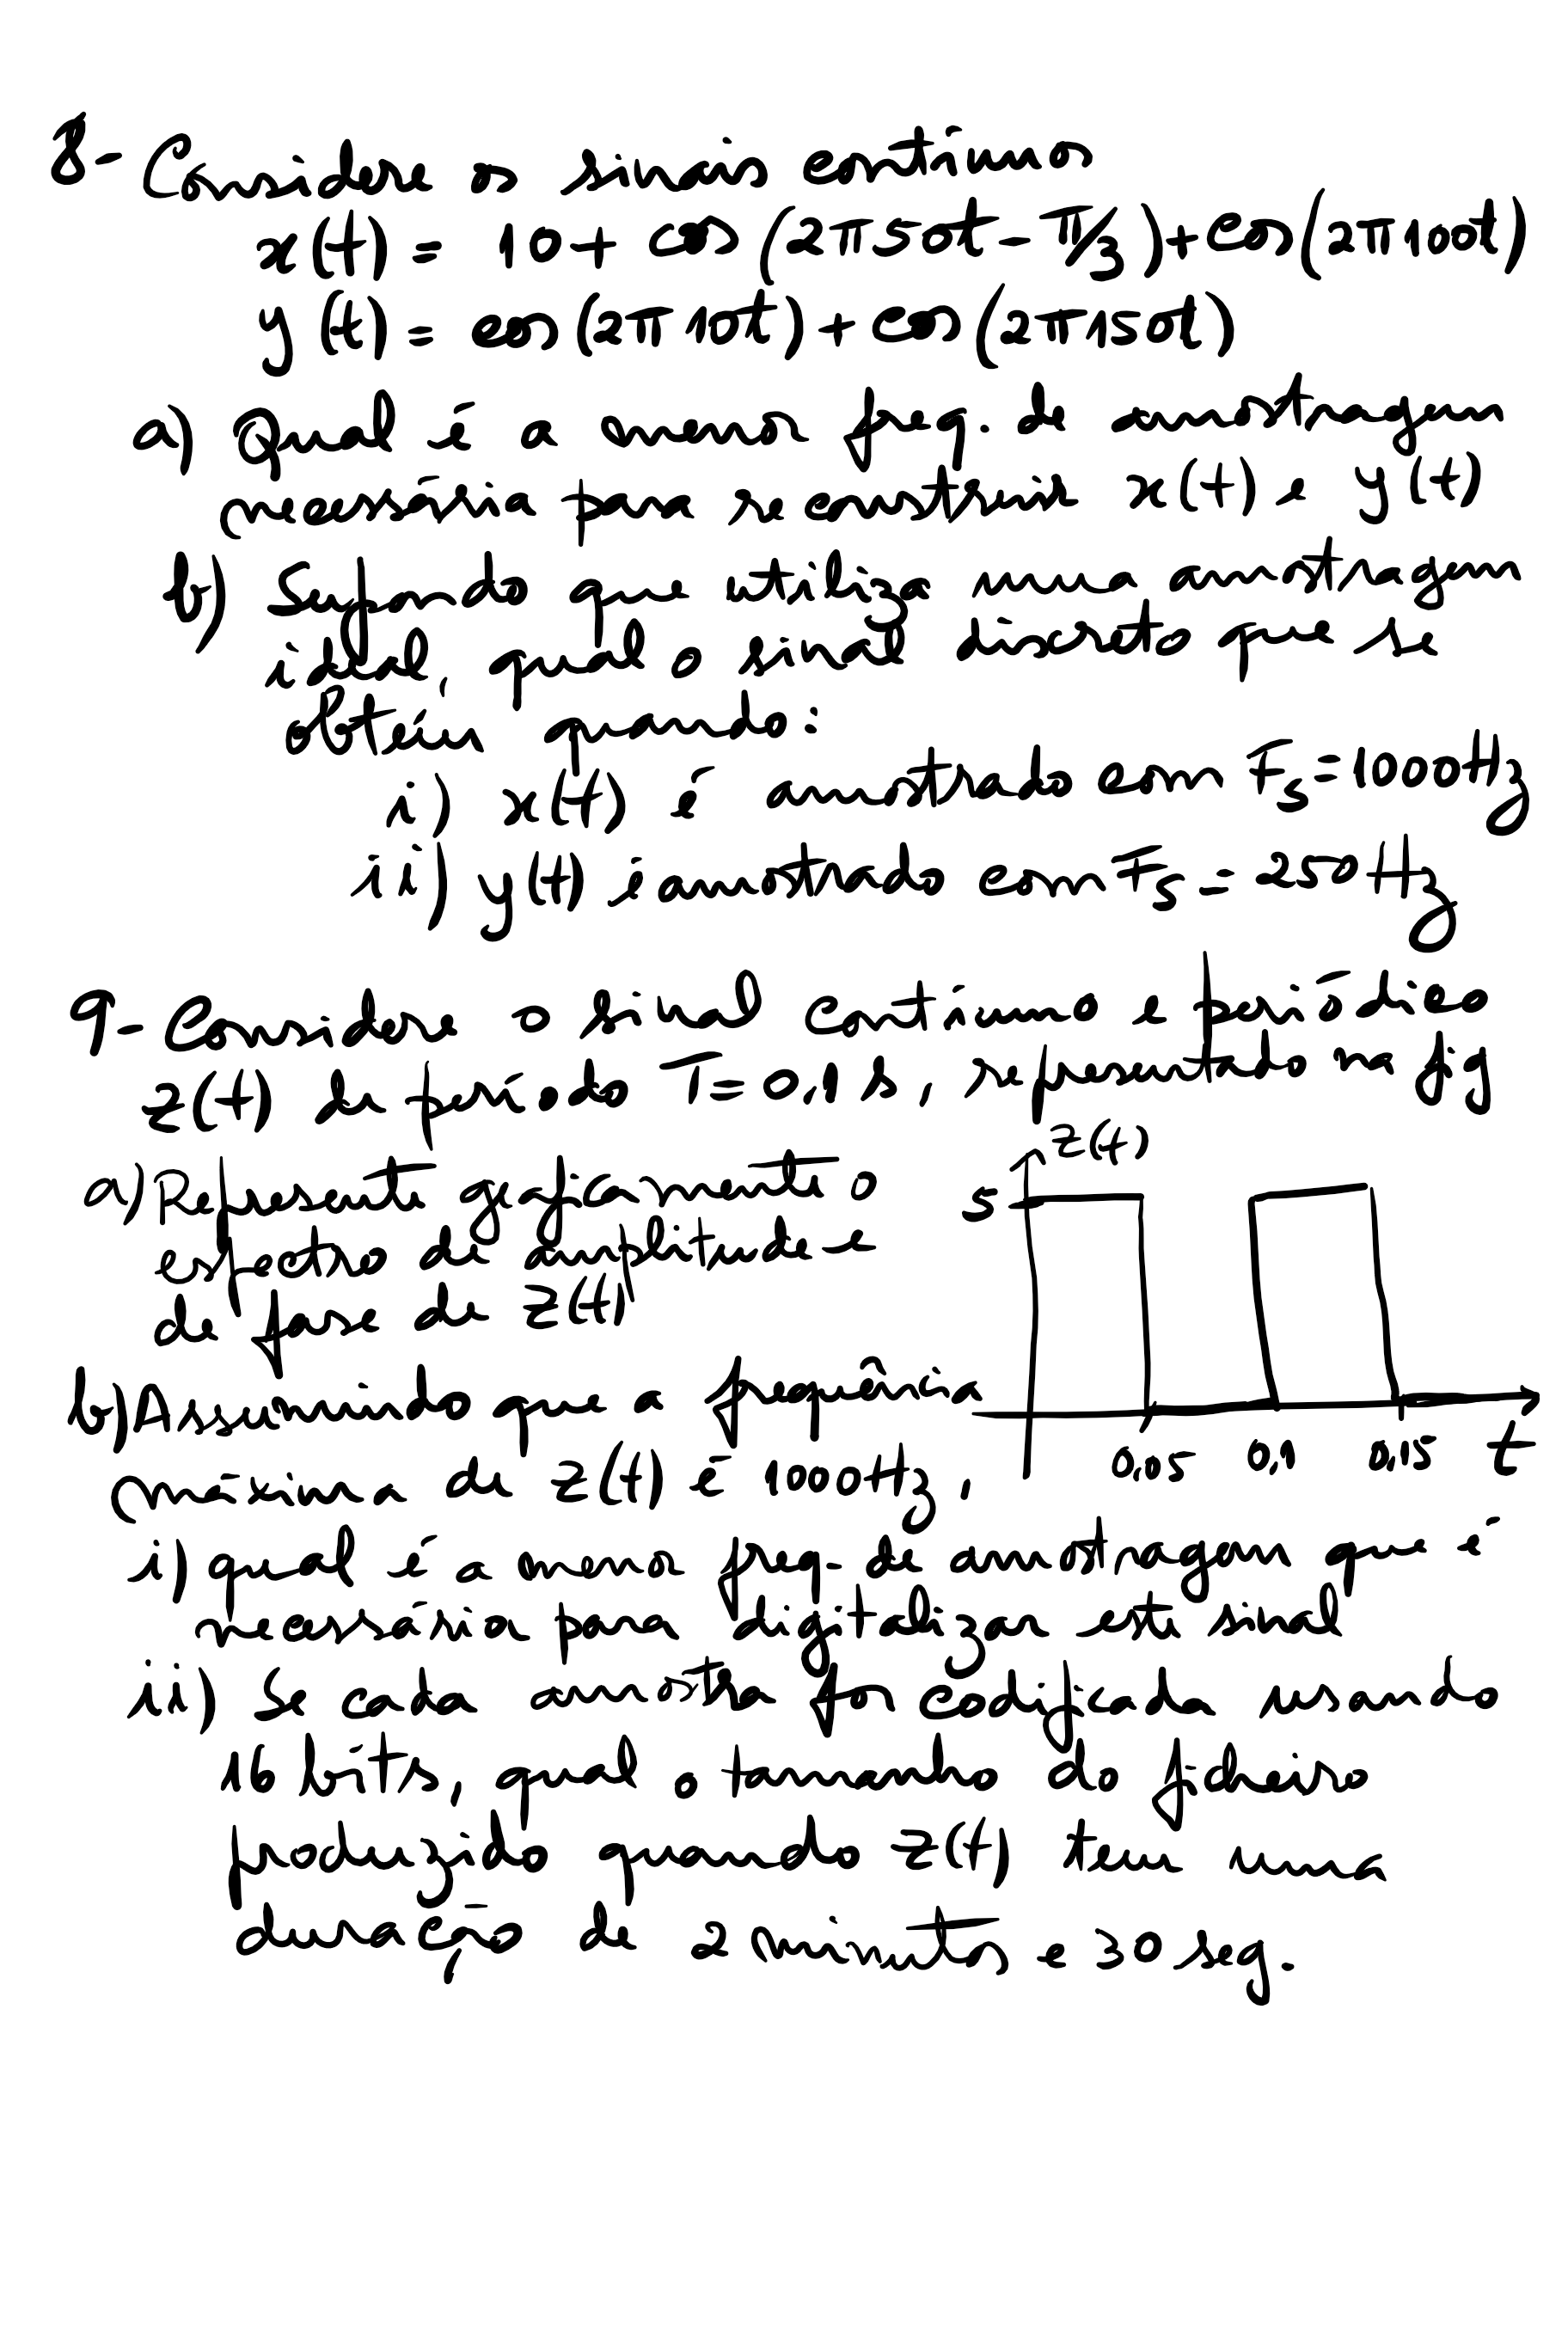 8- Considere os sinais contínuos
x(t) = 10 + cos(2π50t - π/3) + cos(2π100t)
y(t) = cos(2π10t) + cos(2π150t)
a) Qual é a menor freq. de amostragem
necessária para reconstruir x(t) e y(t)
b) Supondo que utiliza uma amostragem
ideal, qual o sinal discreto que se
obtém quando:
i) x(t) é amostrado com Fs = 1000Hz
ii) y(t) é amostrado com Fs = 250Hz
9- Considere o sinal contínuo e periódico
z(t) de período T = 0,1 s, representado na fig
a) Represente graficamente o
espectro de amplitude e
de fase de z(t)
z(t)
5
0,05 0,1 0,15 t
b) Assumindo que a frequência
máxima de z(t) é 1000Hz,
i) qual é a menor freq. de amostragem que é
necessária para digitalizar este sinal
ii) Se cada amostra for codificada usando
16 bits, qual o tamanho do ficheiro
produzido quando z(t) tem uma
duração de 2 minutos e 30 seg.